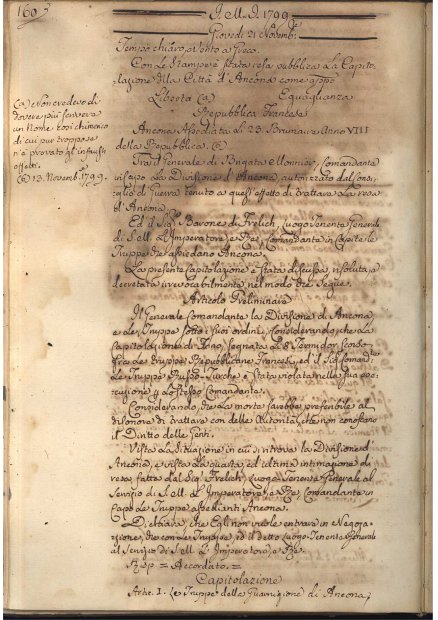 160
J. M. J. 1799
Giovedì 21 Novemb.
Tempo chiaro, e Vento a Greco.
Con le Stampe è stata resa pubblica la Capito-
lazione della Città d'Ancona come appo
Libertà (a) Eguaglianza
Repubblica Francese
Ancona Assediata li 23. Brumaire Anno VIII
della Repubblica. (a)
Tra il Generale di Brigata Monnier, Comandante
in Capo la Divisione d'Ancona, autorizzato dal Con-
siglio di Guerra tenuto a quest'effetto di trattare la resa
d'Ancona.
Ed il Sig. Barone de Frelich, Luogo Tenente Generale
di S. M. l'Imperatore, e Re, Comandante in Capite le
Truppe che assediano Ancona.
La presente Capitolazione è stata discussa, risoluta, e
decretata irrevocabilmente nel modo che segue.
Articolo Preliminare
Il Generale Comandante la Divisione di Ancona,
e le Truppe sotto i suoi ordini, Considerando, che la
Capitolazione di Fano, segnata li 8 Termidor
fra le Truppe Repubblicane Francesi, ed il
le Truppe Russo-Turche è stata violata nella sua ese-
cuzione dallo stesso Comandante.
Considerando, che la morte sarebbe preferibile al
disonore di trattare con delle Autorità, che non conoscono
il Diritto delle Genti.
Vista la situazione in cui si trova la Divisione d'
Ancona, e vista la quarta, ed ultima intimazione di
resa fatta dal Sig. Frelich, Luogo Tenente Generale al
Servizio di S. M. l'Imperatore, e Re, Comandante in
Capo le Truppe assedianti Ancona.
Dichiara, che Egli non vuole entrare in Negozia-
zione, che con le Truppe, ed il detto Luogo-Tenente Generale
al Servizio di S. M. l'Imperatore, e Re.
= Accordato. =
Capitolazione
Artic. I. Le Truppe della Guarnigione di Ancona,
(a) Non credevo di
dovere più scrivere
un Nome così chimerico
di cui pur troppo se
n'è provato gl'infausti
effetti.
(a) 13. Novemb. 1799.